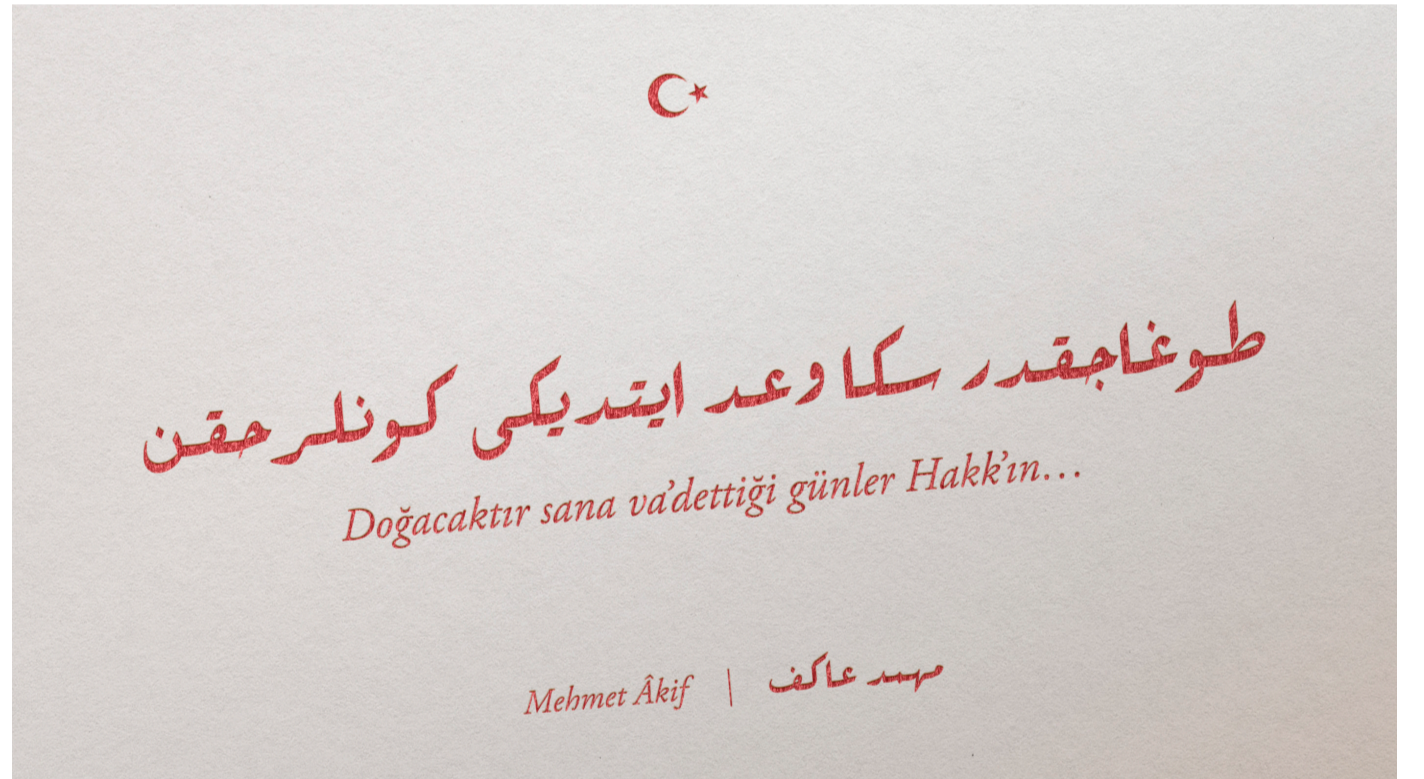 طوغاجقدر سکا وعد ایتدیکی کونلر حقن
Doğacaktır sana va’dettiği günler Hakk’ın…
Mehmet Âkif | مهمد عاکف